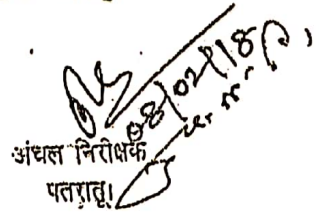 08/02/18
अंचल निरीक्षक
पतरातू।